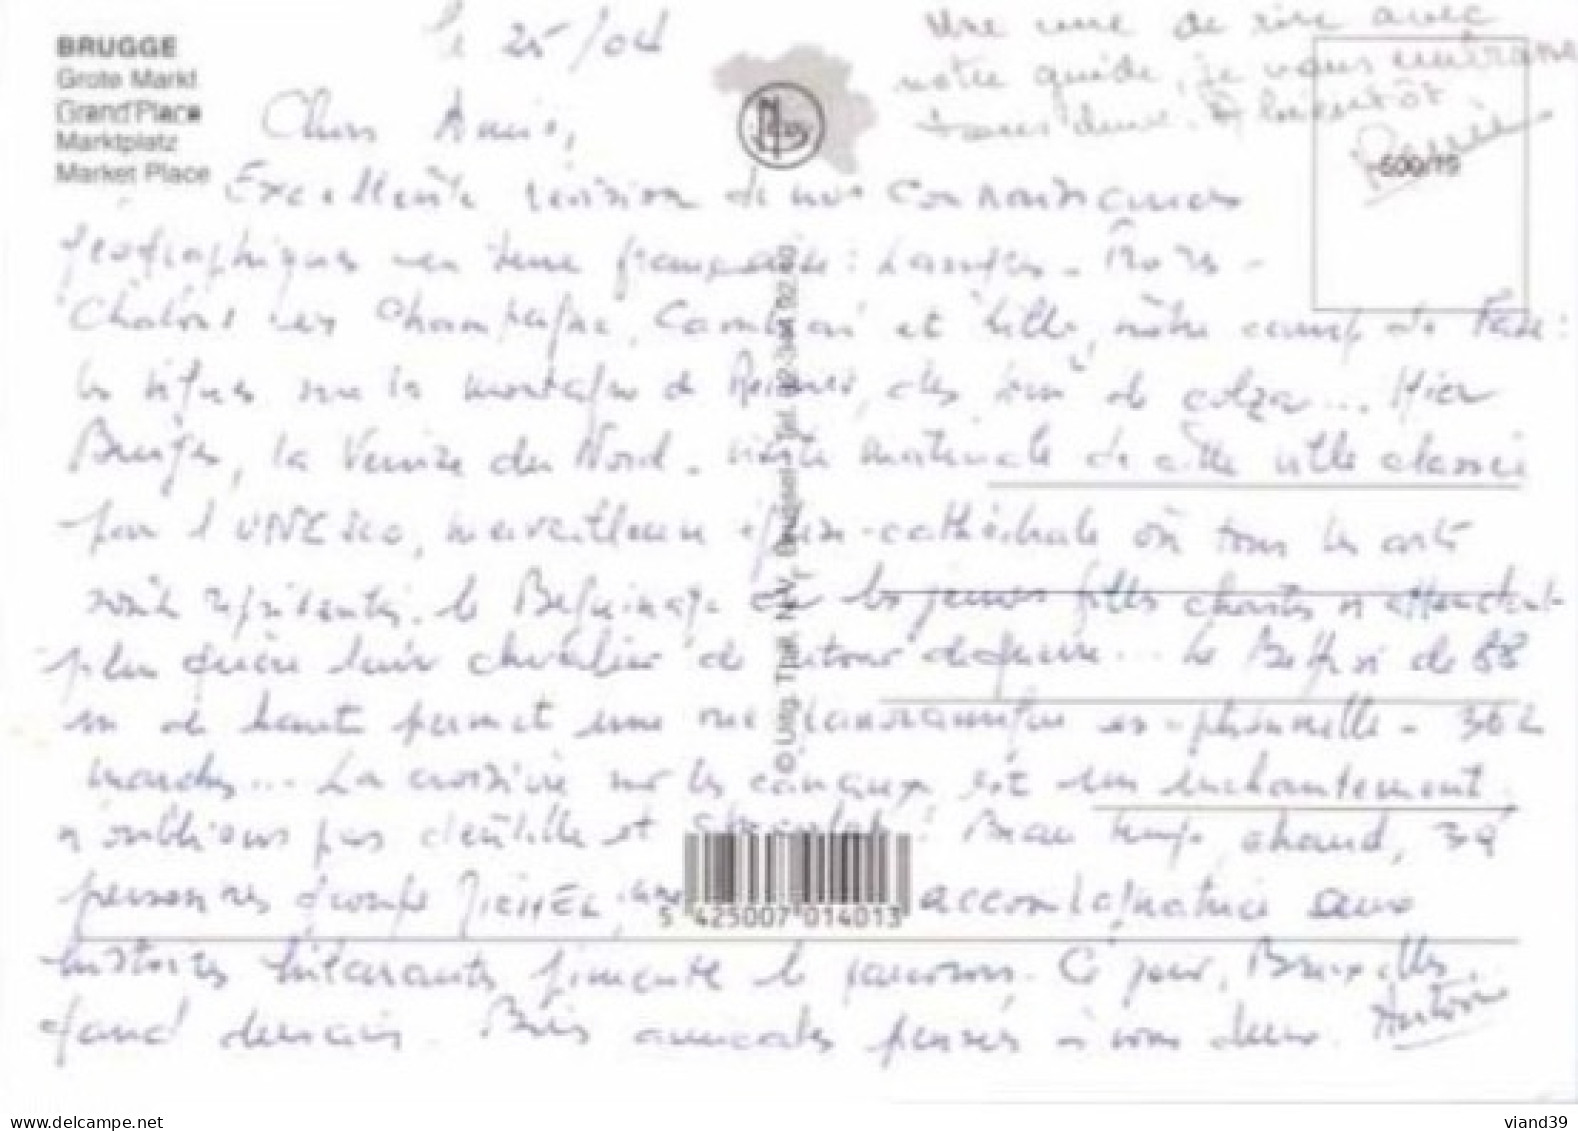 BRUGGE
Grote Markt
Grand'Place
Marktplatz
Market Place
le 25/04
Chers Amis,
Excellente révision de nos connaissances
géographiques en terre française : Langres - Troyes -
Châlons en Champagne, Cambrai et Lille, notre camp de base :
les vignes sur la montagne de Reims, des de colza... Hier
Bruges, la Venise du Nord - visite matinale de cette ville classée
par l'UNESCO, merveilleuse église-cathédrale où tous les arts
sont représentés. le Béguinage où les jeunes filles chastes n'attendent
plus guère leur chevalier de retour de guerre... Le Beffroi de 88
m de haut permet une vue panoramique exceptionnelle - 366
marches... La croisière sur les canaux est un enchantement,
n'oublions pas dentelle et chocolat ! Beau temps, chaud, 39
personnes groupe une accompagnatrice aux
histoires hilarantes pimente le parcours. Ce jour, Bruxelles,
Gand demain. Bien amicales pensées à vous deux. Antoine
une de rire avec
notre guide, je vous embrasse
tous deux. A bientôt
500/15
© Uitg. Thill N.V., Brussel
5 425007 014013
viand39